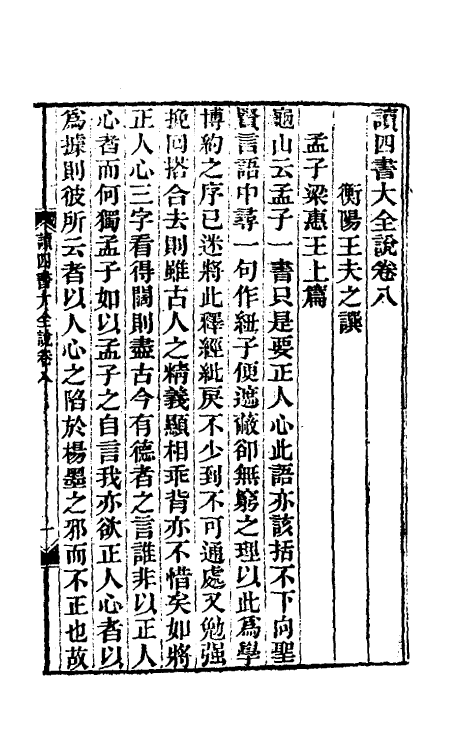 讀四書大全說卷八
衡陽王夫之譔
孟子梁惠王上篇
龜山云孟子一書只是要正人心此語亦該括不下向聖
賢言語中尋一句作紐子便遮蔽卻無窮之理以此爲學
博約之序已迷將此釋經紕戾不少到不可通處又勉强
挽回搭合去則雖古人之精義顯相乖背亦不惜矣如將
正人心三字看得闊則盡古今有德者之言誰非以正人
心者而何獨孟子如以孟子之自言我亦欲正人心者以
爲據則彼所云者以人心之陷於楊墨之邪而不正也故
讀四書大全說卷八
一